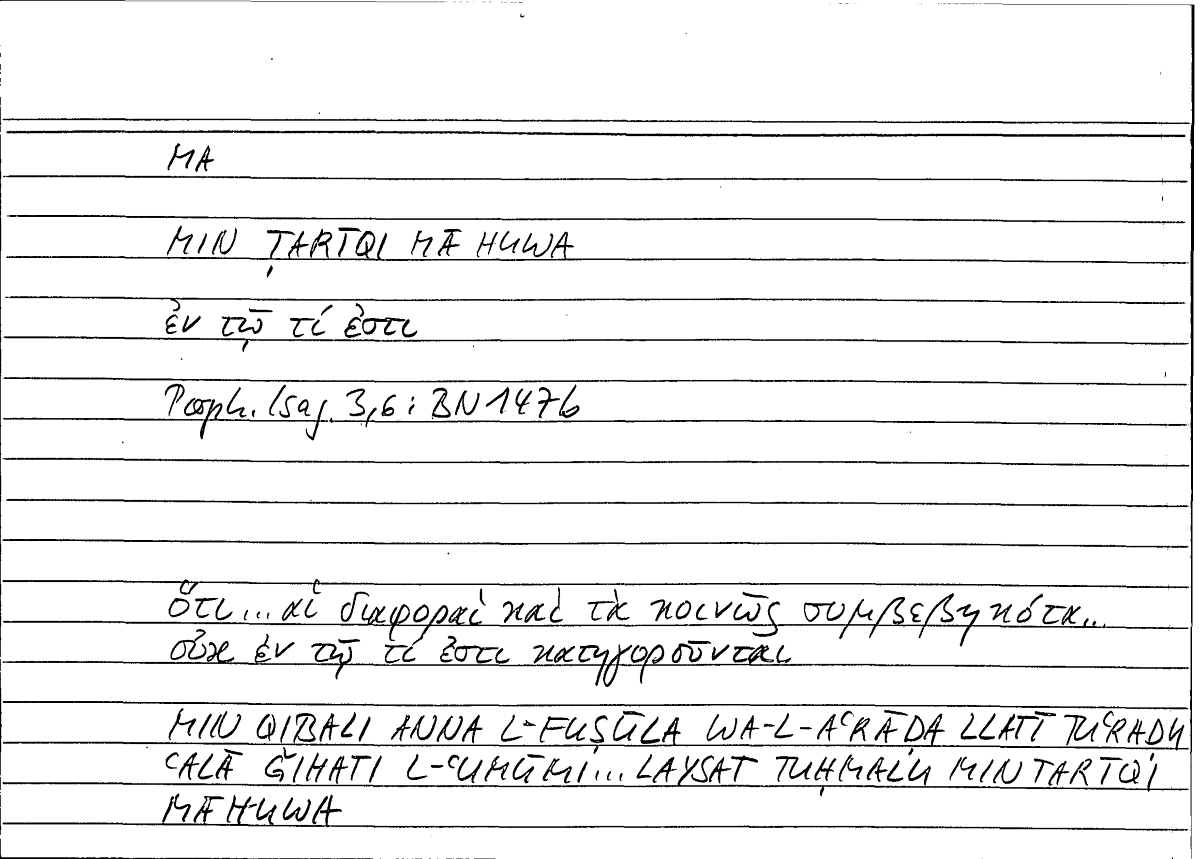 MA
MIN ṬARĪQI MĀ HUWA
ἐν τῷ τί ἐστι
Porph. Isag. 3,6 : BN 147b
ὅτι... αἱ διαφοραὶ καὶ τὰ κοινῶς συμβεβηκότα...
οὐκ ἐν τῷ τί ἐστι κατηγοροῦνται
MIN QIBALI ANNA L-FUṢŪLA WA-L-AʿRĀḌA LLATĪ TUʿRAḌU
ʿALĀ ǦIHATI L-ʿUMŪMI... LAYSAT TUḤMALU MIN ṬARĪQI
MĀ HUWA